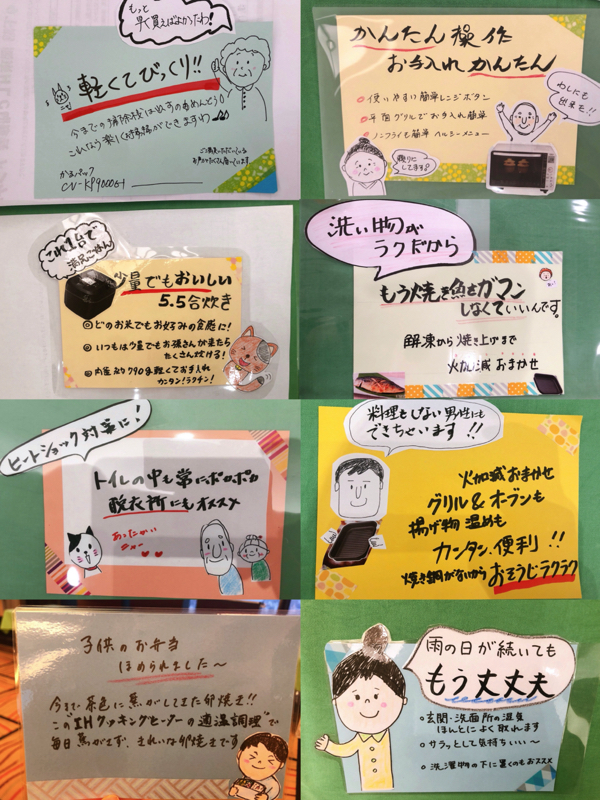 もっと
早く買えばよかったわ!
軽くてびっくり!!
今までの掃除機は
これなら楽しくお掃除ができますわ♪♪
かるパック
かんたん操作
お手入れかんたん
使いやすい簡単レンジボタン
平面グリルでお手入れ簡単
ノンフライも簡単 ヘルシーメニュー
わしにも
出来た!!
頼りに
してます♪
これ1台で
満足ごはん
少量でもおいしい
5.5合炊き
◎どのお米でもお好みの食感に!
◎いつもは少量でもお孫さんが来たら
たくさん炊ける!
◎内釜約790g軽くてお手入れ
カンタン!ラクチン!
洗い物が
ラクだから
もう焼き魚をガマン
しなくていいんです。
解凍から焼き上げまで
火加減おまかせ
ヒートショック対策に!
トイレの中も常にポカポカ
脱衣所にもオススメ
あったかい
ニャー
料理もしない男性にも
できちゃいます!!
火加減おまかせ
グリル&オーブンも
揚げ物温めも
カンタン、便利!!
焼き網がないからおそうじラクラク
子供のお弁当
ほめられました〜
今まで茶色に焦がしてた卵焼き!!
この"IHクッキングヒーターの適温調理"で
毎日焦がさず、きれいな卵焼きです
雨の日が続いても
もう丈夫
○玄関・洗面所の湿気
ほんとによく取れます
○サラッとして気持ちいい〜
○洗濯物の下に置くのもおススメ